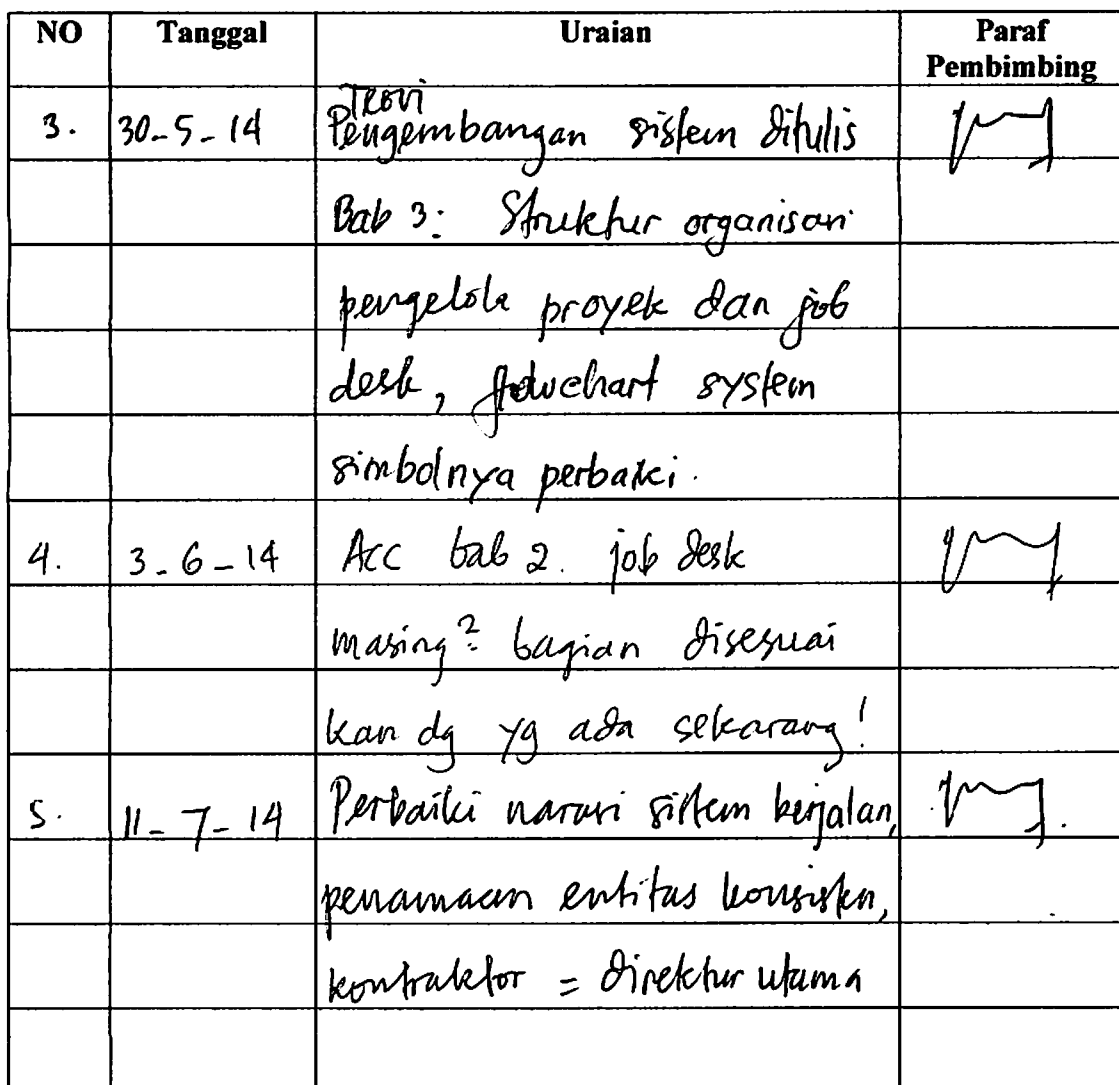 NO Tanggal Uraian Paraf Pembimbing
Teori
3. 30-5-14 Pengembangan sistem ditulis
Bab 3: Struktur organisasi
pengelola proyek dan job
desk, flowchart system
simbolnya perbaiki.
4. 3-6-14 Acc bab 2. job desk
masing2 bagian disesuai
kan dg yg ada sekarang!
5. 11-7-14 Perbaiki narasi sistem berjalan,
penamaan entitas konsisten,
kontraktor = direktur utama